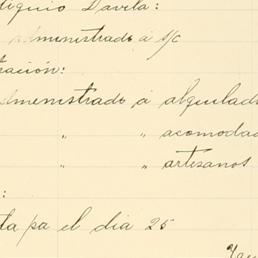 tiquio Davila:
administrado á S/C
tración:
dministrado á alquilad
" " acomodad
" " artesanos
:
ta pa el dia 25